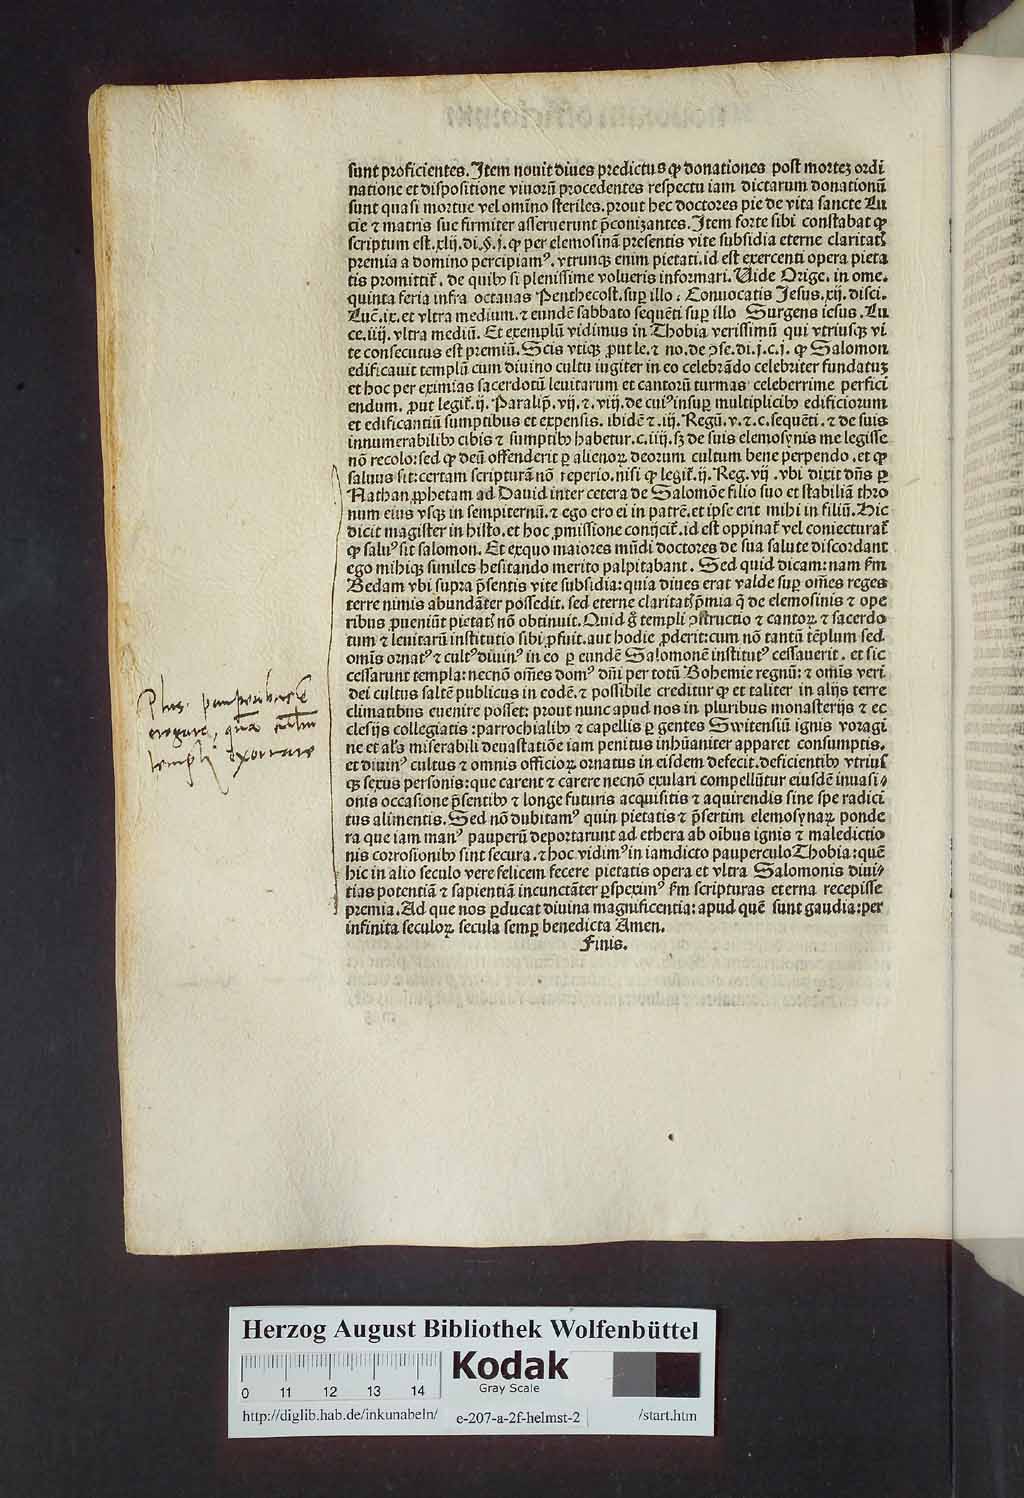 sunt proficientes. Item nouit diues predictus ꝙ donationes post morteꝫ ordi
natione et dispositione viuorū procedentes respectu iam dictarum donationū
sunt quasi mortue vel omīno steriles. prout hec doctores pie de vita sancte Lu
cie ⁊ matris sue firmiter asseruerunt p̄conizantes. Item forte sibi constabat ꝙ
scriptum est. xlij. di. §. j. ꝙ per elemosinā presentis vite subsidia eterne claritatꝭ
premia a domino percipiamꝰ. vtrunqꝫ enim pietati. id est exercenti opera pieta
tis promittit᷑. de quibꝰ si plenissime volueris informari. Uide Orige. in ome.
quinta feria infra octauas Penthecost. suꝑ illo: Conuocatis Jesus. xij. disci.
Luc̄. ix. et vltra medium. ⁊ eundē sabbato sequēti suꝑ illo Surgens iesus. Lu
ce. iiij. vltra mediū. Et exemplū vidimus in Thobia verissimū qui vtriusqꝫ vi
te consecutus est premiū. Scis vtiqꝫ ꝓut le. ⁊ no. de ꝯse. di. j. c. j. ꝙ Salomon
edificauit templū cum diuino cultu iugiter in eo celebrādo celebriter fundatuꝫ
et hoc per eximias sacerdotū leuitarum et cantorū turmas celeberrime perfici
endum. ꝓut legit᷑. ij. Paralip̄. vij. ⁊. viij. de cuiꝰ insuꝑ multiplicibꝰ edificiorum
et edificantiū sumptibus et expensis. ibidē ⁊. iij. Regū. v. ⁊. c. sequēti. ⁊ de suis
innumerabilibꝰ cibis ⁊ sumptibꝰ habetur. c. iiij. sꝫ de suis elemosynis me legisse
nō recolo: sed ꝙ deū offenderit ꝑ alienoꝝ deorum cultum bene perpendo. et ꝙ
saluus sit: certam scripturā nō reperio. nisi ꝙ legit᷑. ij. Reg. vij. vbi dixit dn̄s ꝑ
Nathan ꝓphetam ad Dauid inter cetera de Salomōe filio suo et stabiliā thro
num eius vsqꝫ in sempiternū. ⁊ ego ero ei in patrē. et ipse erit mihi in filiū. Hic
dicit magister in histo. et hoc ꝓmissione conijcit᷑. id est oppinat᷑ vel coniecturat᷑
ꝙ saluꝰ sit salomon. Et exquo maiores mūdi doctores de sua salute discordant
ego mihiqꝫ similes hesitando merito palpitabant. Sed quid dicam: nam ẜm
Bedam vbi supra p̄sentis vite subsidia: quia diues erat valde suꝑ om̄es reges
terre nimis abundāter possedit. sed eterne claritatꝭ p̄mia q̄ de elemosinis ⁊ ope
ribus ꝓueniūt pietatꝭ nō obtinuit. Quid g̊ templi ꝯstructio ⁊ cantoꝝ ⁊ sacerdo
tum ⁊ leuitarū institutio sibi ꝓfuit. aut hodie ꝓderit: cum nō tantū tēplum sed
omīs ornatꝰ ⁊ cultꝰ diuinꝰ in eo ꝑ eundē Salomonē institutꝰ cessauerit. et sic
cessarunt templa: necnō om̄es domꝰ dn̄i per totū Bohemie regnū: ⁊ omīs veri
dei cultus saltē publicus in eodē. ⁊ possibile creditur ꝙ et taliter in alijs terre
climatibus euenire posset: prout nunc apud nos in pluribus monasterijs ⁊ ec
clesijs collegiatis: parrochialibꝰ ⁊ capellis ꝑ gentes Switensiū ignis voragi
ne et al̓s miserabili deuastatiōe iam penitus inhūaniter apparet consumptis.
et diuinꝰ cultus ⁊ omnis officioꝝ ornatus in eisdem defecit. deficientibꝰ vtrius
qꝫ sexus personis: que carent ⁊ carere necnō exulari compellūtur eiusdē inuasi
onis occasione p̄sentibꝰ ⁊ longe futuris acquisitis ⁊ aquirendis sine spe radici
tus alimentis. Sed nō dubitamꝰ quin pietatis ⁊ p̄sertim elemosynaꝝ ponde
ra que iam manꝰ pauperū deportarunt ad ethera ab oībus ignis ⁊ maledictio
nis corrosionibꝰ sint secura. ⁊ hoc vidimꝰ in iamdicto pauperculo Thobia: quē
hic in alio seculo vere felicem fecere pietatis opera et vltra Salomonis diui
tias potentiā ⁊ sapientiā incunctāter ꝑspeximꝰ ẜm scripturas eterna recepisse
premia. Ad que nos ꝑducat diuina magnificentia: apud quē sunt gaudia: per
infinita seculoꝝ secula semꝑ benedicta Amen.
Finis.
Plus. pauperibus ē
erogare, quā cultū
templi exornare
Herzog August Bibliothek Wolfenbüttel
Kodak
Gray Scale
0 11 12 13 14
http://diglib.hab.de/inkunabeln/ e-207-a-2f-helmst-2 /start.htm